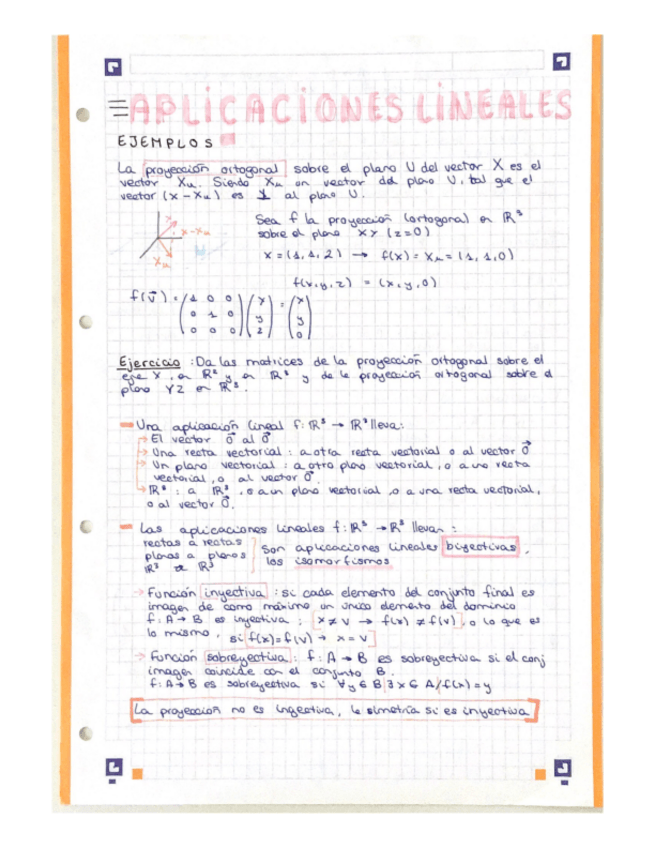 APLICACIONES LINEALES
EJEMPLOS
La proyección ortogonal sobre el plano U del vector X es el
vector Xu. Siendo Xu un vector del plano U, tal que el
vector (x-Xu) es ⊥ al plano U.
Sea f la proyección (ortogonal) en ℝ³
sobre el plano XY (z=0)
x
x-xu
xu
x = (1, 1, 2) → f(x) = Xu = (1, 1, 0)
f(x, y, z) = (x, y, 0)
f(v⃗) = (1 0 0) (x) = (x)
(0 1 0) (y) (y)
(0 0 0) (z) (0)
Ejercicio: Da las matrices de la proyección ortogonal sobre el
eje X, en ℝ² y en ℝ³ y de la proyección ortogonal sobre el
plano YZ en ℝ³.
Una aplicación lineal f: ℝ³ → ℝ³ lleva:
El vector 0⃗ al 0⃗
Una recta vectorial: a otra recta vectorial o al vector 0⃗
Un plano vectorial: a otro plano vectorial, o a una recta
vectorial, o al vector 0⃗.
ℝ³: a ℝ³, o a un plano vectorial, o a una recta vectorial,
o al vector 0⃗.
Las aplicaciones lineales f: ℝ³ → ℝ³ llevan:
rectas a rectas
planos a planos
ℝ³ a ℝ³
Son aplicaciones lineales biyectivas,
los isomorfismos
Función inyectiva: si cada elemento del conjunto final es
imagen de como máximo un único elemento del dominio
f: A → B es inyectiva: x ≠ v → f(x) ≠ f(v), o lo que es
lo mismo, si f(x) = f(v) → x = v
Función sobreyectiva: f: A → B es sobreyectiva si el conj
imagen coincide con el conjunto B.
f: A → B es sobreyectiva si ∀y ∈ B ∃ x ∈ A / f(x) = y
La proyección no es inyectiva, la simetría si es inyectiva